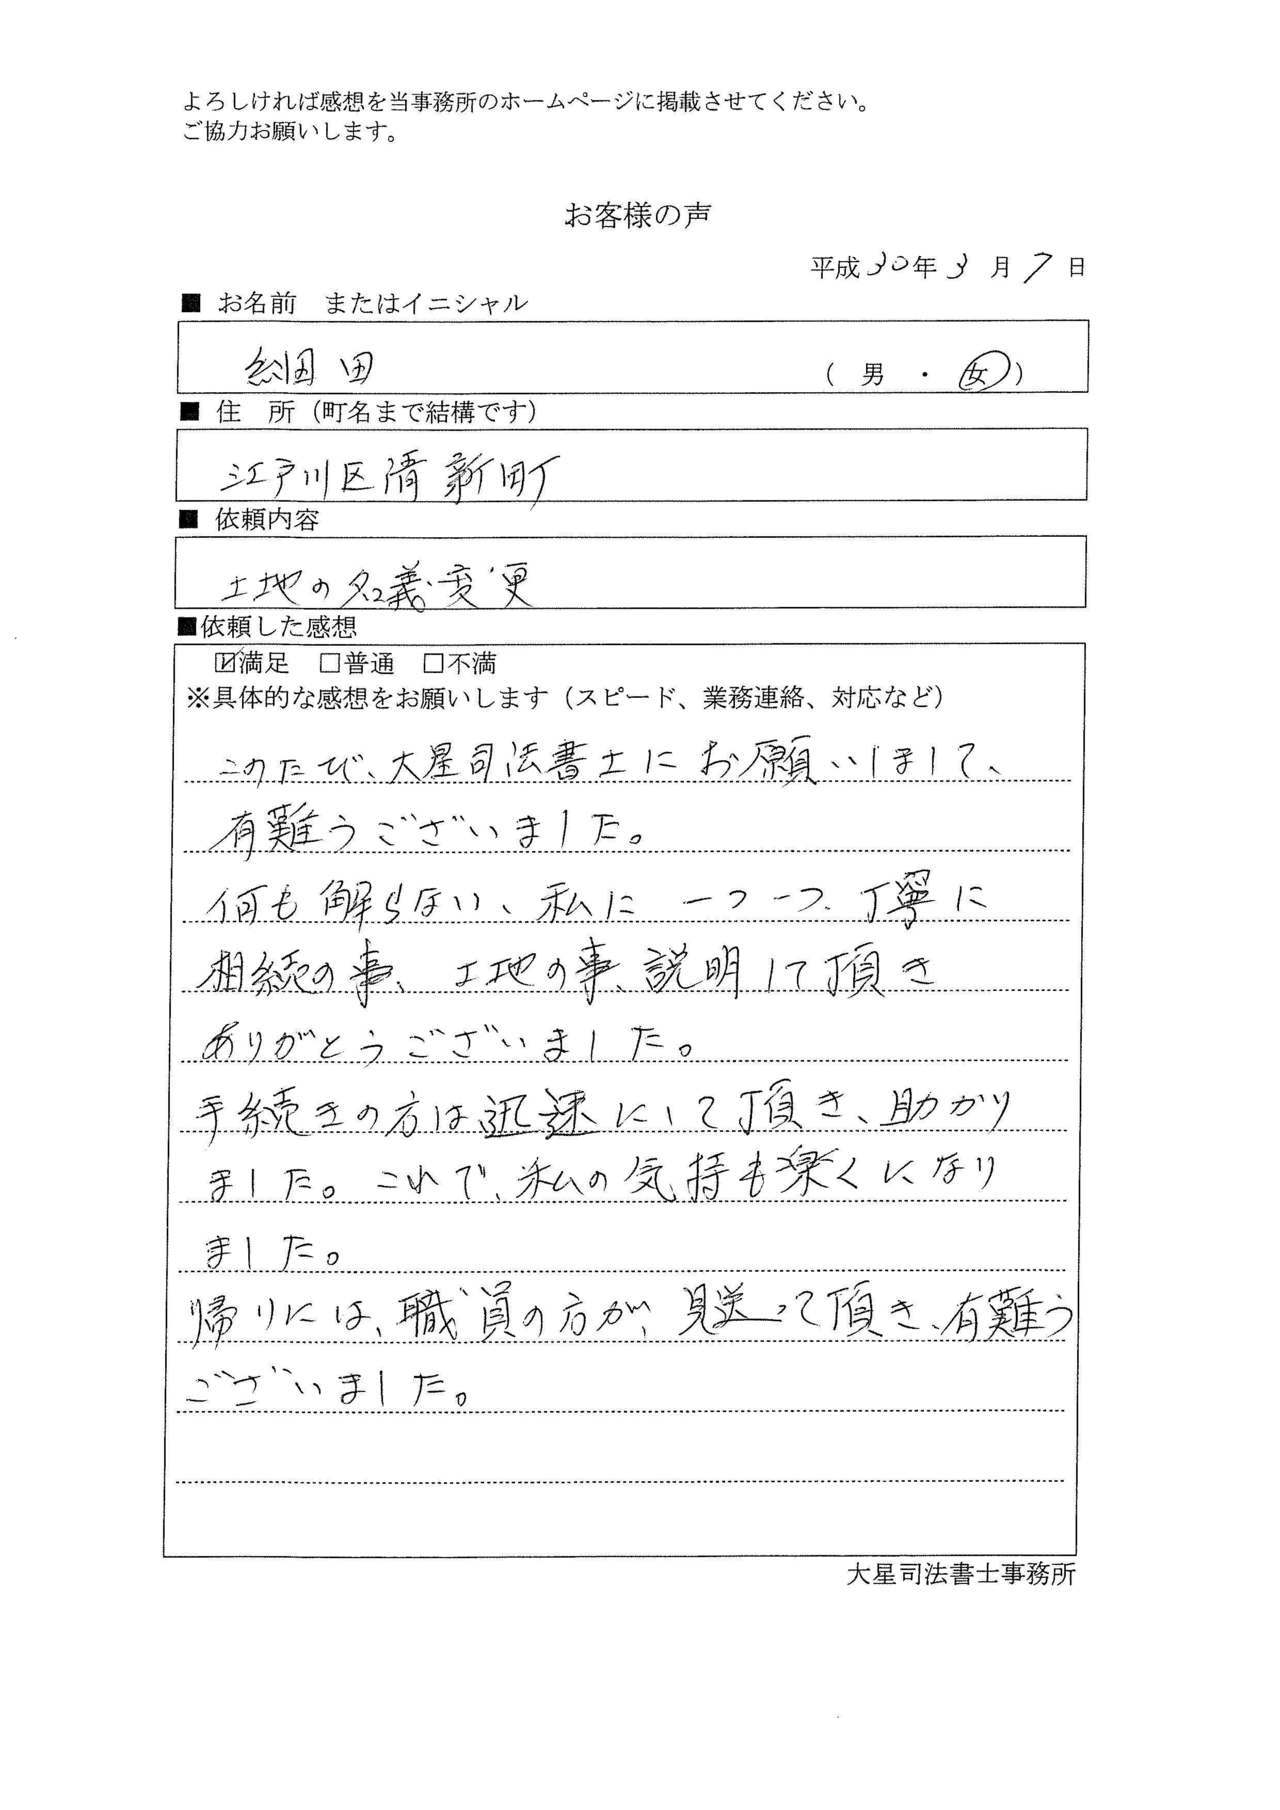 よろしければ感想を当事務所のホームページに掲載させてください。
ご協力お願いします。
お客様の声
平成30年3月7日
■ お名前 またはイニシャル
細田 （ 男 ・ 女 ）
■ 住 所（町名まで結構です）
江戸川区清新町
■ 依頼内容
土地の名義変更
■依頼した感想
☑満足 □普通 □不満
※具体的な感想をお願いします（スピード、業務連絡、対応など）
このたび、大星司法書士にお願いしまして、
有難うございました。
何も解らない、私に一つ一つ、丁寧に
相続の事、土地の事、説明して頂き
ありがとうございました。
手続きの方は迅速にして頂き、助かり
ました。これで、私の気持も楽くになり
ました。
帰りには、職員の方が、見送って頂き、有難う
ございました。
大星司法書士事務所